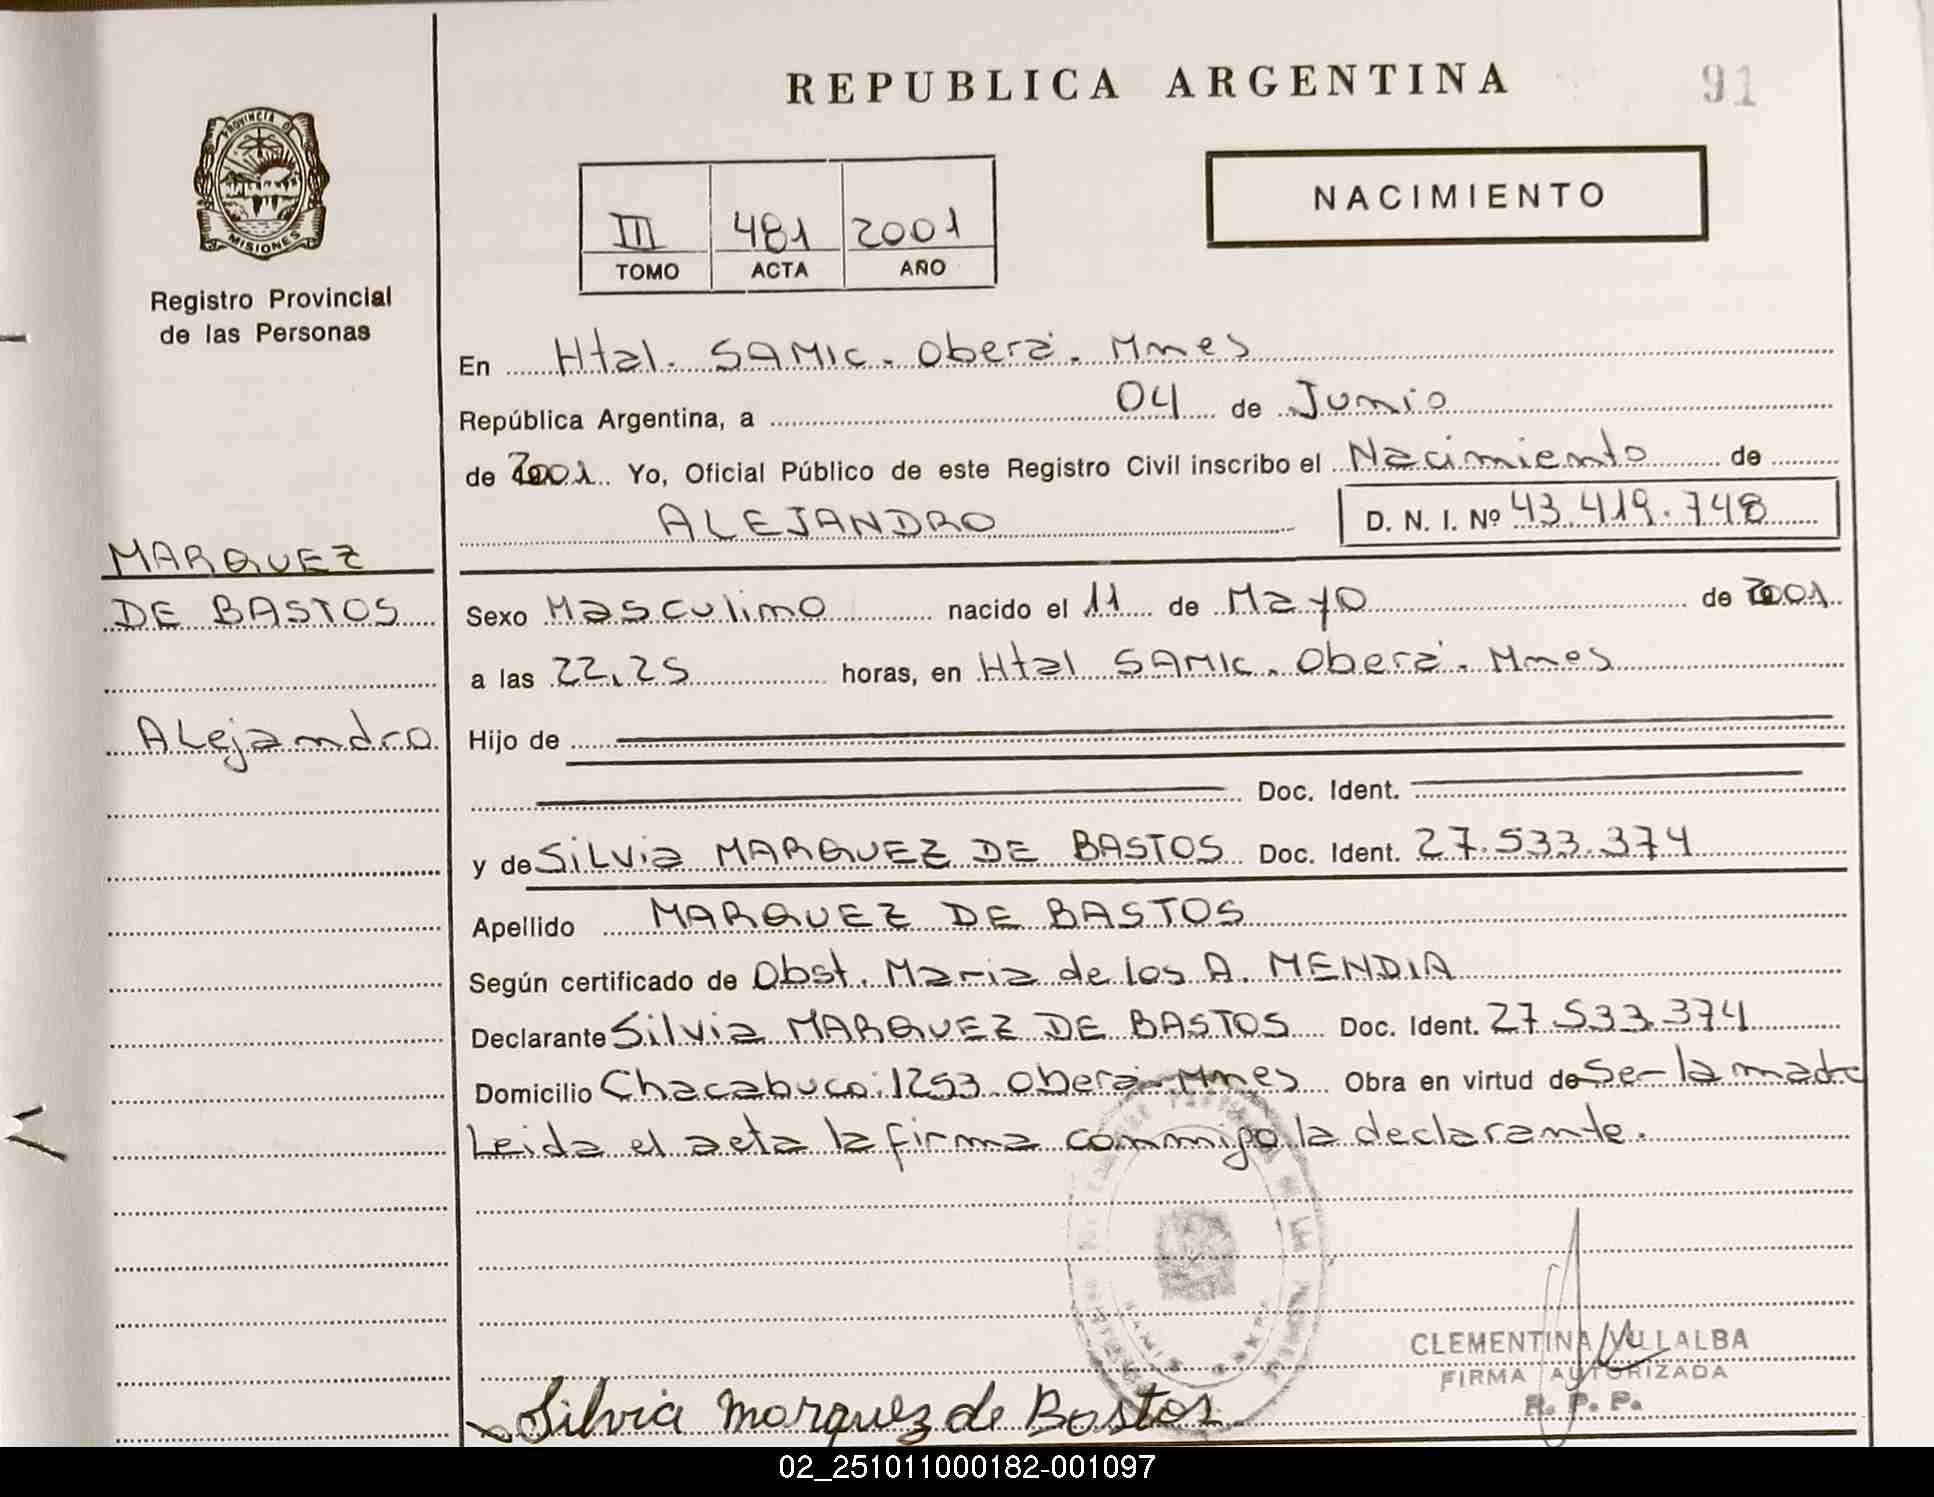 REPUBLICA ARGENTINA
91
PROVINCIA D
MISIONES
Registro Provincial
de las Personas
III 481 2001
TOMO ACTA AÑO
NACIMIENTO
En Htal. SAMIC. Oberá. Mnes
República Argentina, a 04 de Junio
de 2001 Yo, Oficial Público de este Registro Civil inscribo el Nacimiento de
ALEJANDRO D. N. I. Nº 43.419.748
MARQUEZ
DE BASTOS
Alejandro
Sexo Masculino nacido el 11 de Mayo de 2001
a las 22,25 horas, en Htal SAMIC. Oberá. Mnes
Hijo de
Doc. Ident.
y de Silvia MARQUEZ DE BASTOS Doc. Ident. 27.533.374
Apellido MARQUEZ DE BASTOS
Según certificado de Obst. Maria de los A. MENDIA
Declarante Silvia MARQUEZ DE BASTOS Doc. Ident. 27.533.374
Domicilio Chacabuco 1253. Oberá-Mnes Obra en virtud de Ser la madre
Leida el acta la firma conmigo la declarante.
CLEMENTINA VILLALBA
FIRMA AUTORIZADA
R. P. P.
Silvia Marquez de Bastos
02_251011000182-001097